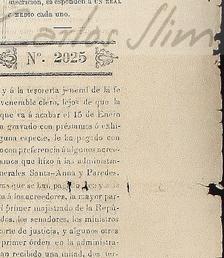 suscrición, se espenden á UN REAL
Y MEDIO cada uno.
Carlos Slim
Nº. 2025
y á la tesorería general de la fe
venerable clero, lejos de que la
que va á acabar el 15 de Enero
n gravado con préstamos ó exhi-
guna especie, le ha pagado con
con preferencia á algunos acree-
amos que hizo á las administra-
nerales Santa-Anna y Paredes.
ras que se han pagado
á los acreedores, la mayor par-
l primer magistrado de la Repú-
dos, los senadores, los ministros
corte de justicia, y algunos otros
primer órden en la administra-
an recibido una mitad, dos ter-